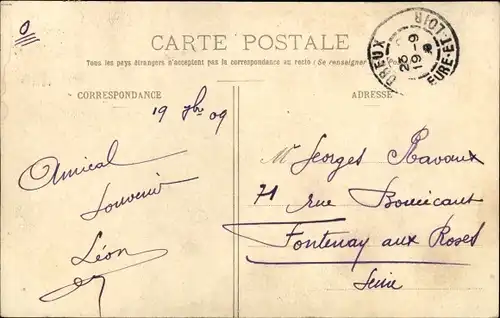 CARTE POSTALE
Tous les pays étrangers n'acceptent pas la correspondance au recto (Se renseigner
CORRESPONDANCE
ADRESSE
DREUX
23
19-9
EURE-ET-LOIR
19 9bre 09
Amical
souvenir
Léon
Mr Georges Ravaux
71 rue Boucicaut
Fontenay aux Roses
Seine